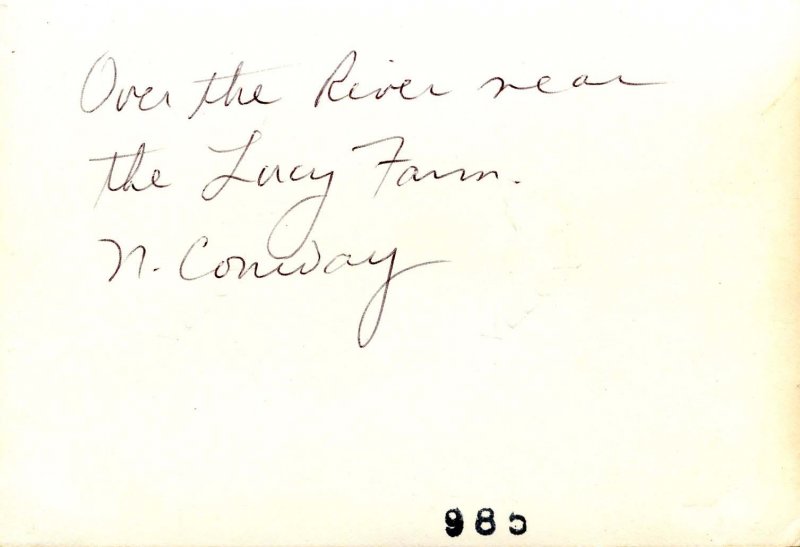 Over the River near
the Lucy Farm.
N. Conway
985